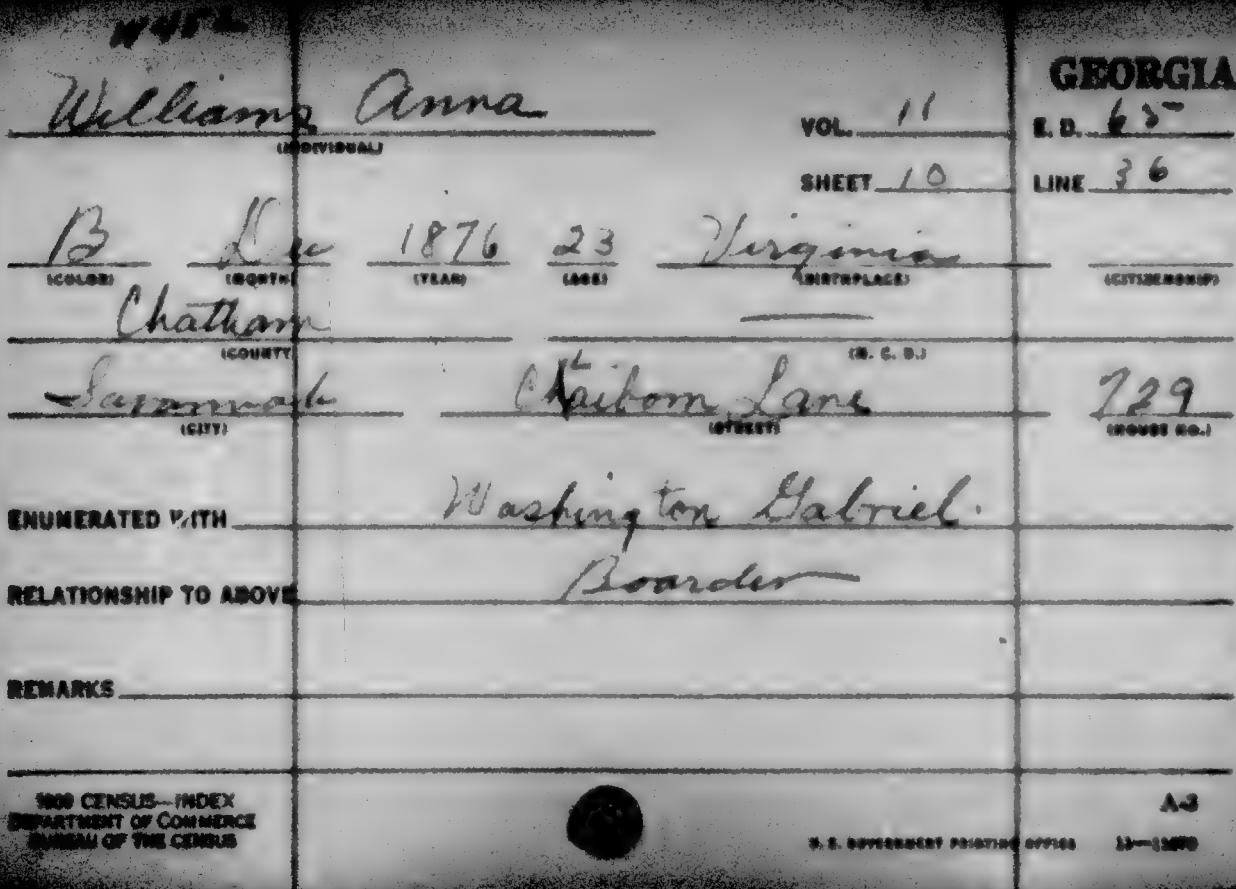 W452
GEORGIA
Williams Anna
(INDIVIDUAL)
VOL. 11 E. D. 65
SHEET 10 LINE 36
B Dec 1876 23 Virginia
(COLOR) (MONTH) (YEAR) (AGE) (BIRTHPLACE) (CITIZENSHIP)
Chatham
(COUNTY) (M. C. D.)
Savannah Lane 729
(CITY) (STREET) (HOUSE NO.)
ENUMERATED WITH Washington Gabriel.
RELATIONSHIP TO ABOVE Boarder
REMARKS
1900 CENSUS—INDEX
DEPARTMENT OF COMMERCE
BUREAU OF THE CENSUS
A-3
U. S. GOVERNMENT PRINTING OFFICE